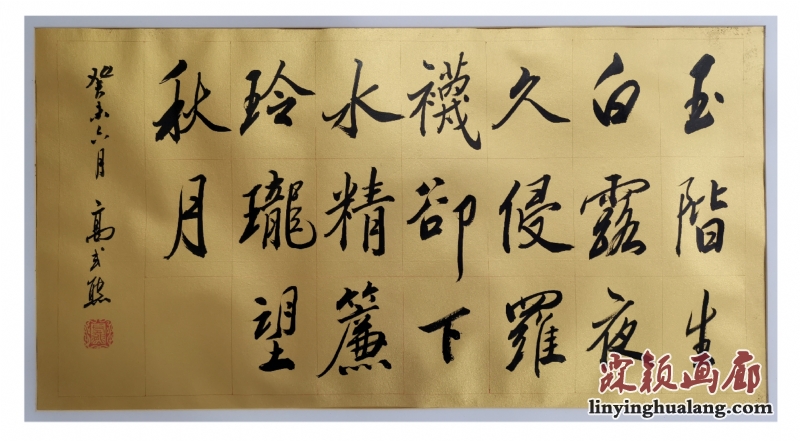 玉階生
白露夜
久侵羅
襪卻下
水精簾
玲瓏望
秋月
癸未六月 高式熊
霖颖画廊
linyinghualang.com